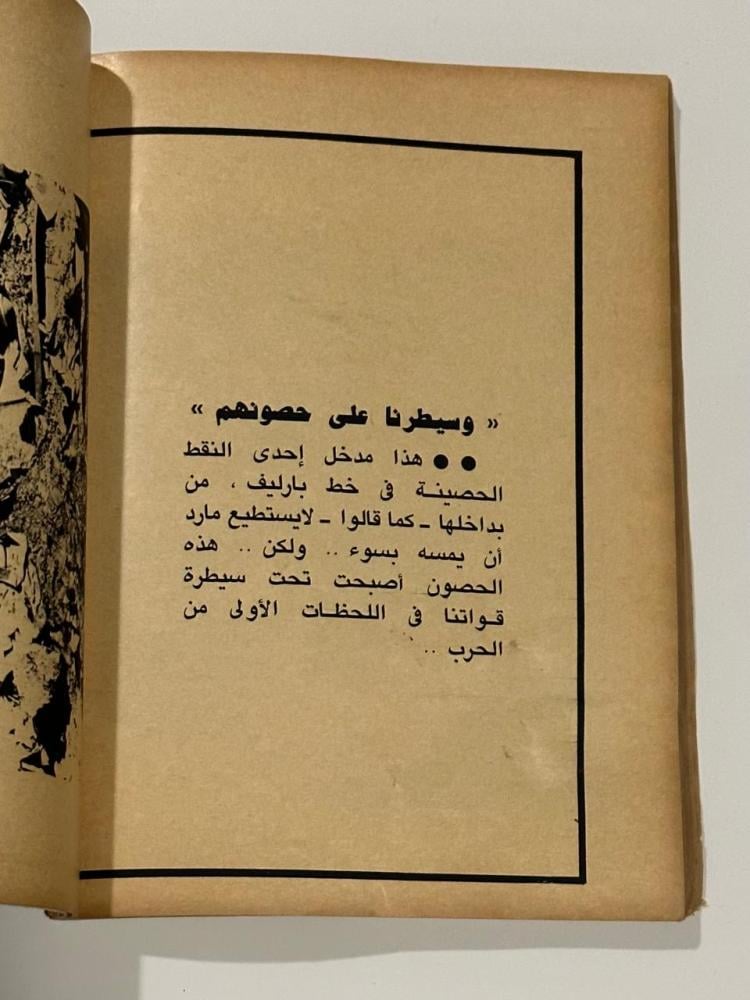 « وسيطرنا على حصونهم »
●● هذا مدخل إحدى النقط
الحصينـة فى خط بارليف ، من
بداخلها ـ كما قالوا ـ لايستطيع مارد
أن يمسه بسوء .. ولكن .. هذه
الحصون أصبحت تحت سيطرة
قـواتنا فى اللحظـات الأولى من
الحرب ..